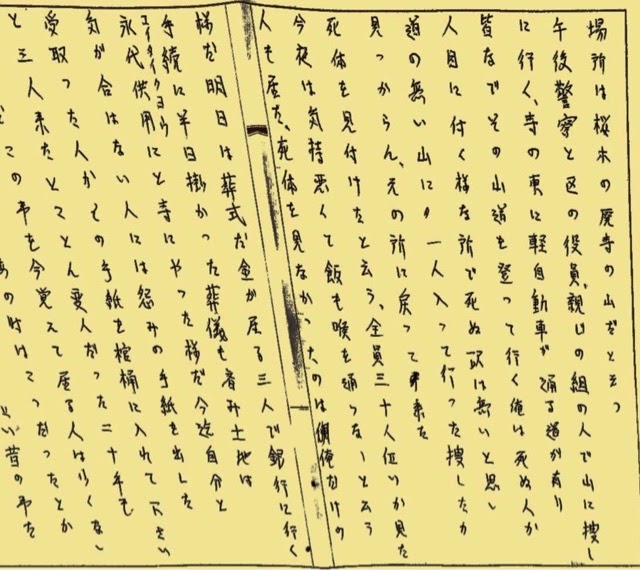 場所は桜木の廃寺の山だと云う
午後警察と区の役員、親じの組の人で山に捜し
に行く、寺の東に軽自動車が通る道が有り
皆なでその山道を登って行く俺は死ぬ人が
人目に付く様な所で死ぬ訳は無いと思い
道の無い山に一人入って行った捜したが
見つからん、元の所に戻って来た
死体を見付けたと云う、全員三十人位いが見た
今夜は気持悪くて飯も喉を通らないと云う
人も居た、死体を見なかったのは俺だけの
様だ明日は葬式だ金が居る三人で銀行に行く
手続に半日掛かった葬儀も済み土地は
エイタイクヨウ
永代供用にと寺にやった様だ今迄自分と
気が合はない人には怨みの手紙を出した
受取った人がその手紙を棺桶に入れて下さい
と三人来たとことん変人だった二十年も
この事を今覚えて居る人は少くない
あの時はこうだったとか
昔の事だ